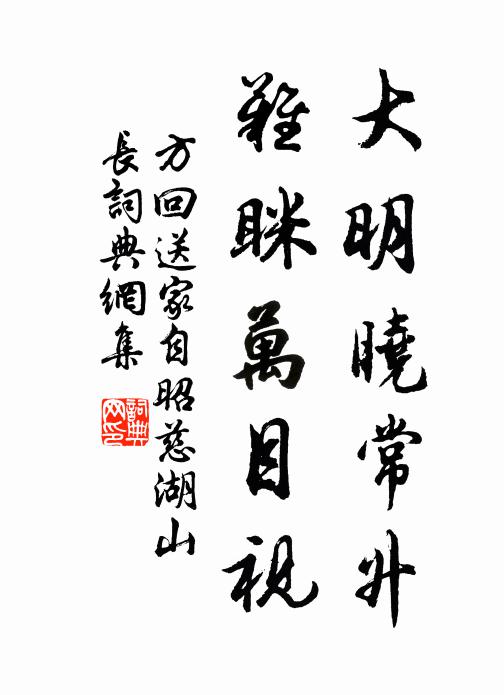 大明曉常升
難眯萬目視
方回送家自昭慈湖山
長詞典網集
詞典网印